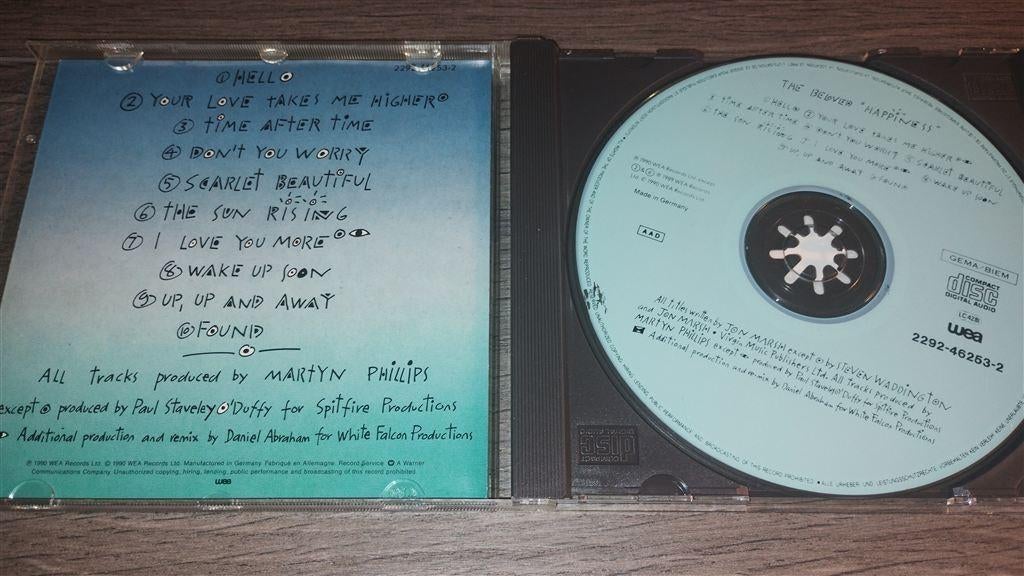 ① HELLO
2292-46253-2
② YOUR LOVE TAKES ME HIGHER
③ TIME AFTER TIME
④ DON'T YOU WORRY
⑤ SCARLET BEAUTIFUL
⑥ THE SUN RISING
⑦ I LOVE YOU MORE
⑧ WAKE UP SOON
⑨ UP, UP AND AWAY
⑩ FOUND
ALL tracks produced by MARTYN PHILLIPS
except produced by Paul Staveley O'Duffy for Spitfire Productions
Additional production and remix by Daniel Abraham for White Falcon Productions
℗ 1990 WEA Records Ltd. © 1990 WEA Records Ltd. Manufactured in Germany. Fabriqué en Allemagne. Record Service A Warner
Communications Company. Unauthorized copying, hiring, lending, public performance and broadcasting of this record prohibited.
wea
THE BELOVED "HAPPINESS"
① HELLO ② YOUR LOVE TAKES ME HIGHER
3. TIME AFTER TIME ④ DON'T YOU WORRY ⑤ SCARLET BEAUTIFUL
6. THE SUN RISING 7. I LOVE YOU MORE ⑧ WAKE UP SOON
9. UP, UP AND AWAY ⑩ FOUND
Made in Germany
AAD
GEMA/BIEM
COMPACT
disc
DIGITAL AUDIO
LC 4281
wea
2292-46253-2
All titles written by JON MARSH except by STEVEN WADDINGTON
and JON MARSH • Virgin Music Publishers Ltd. All tracks produced by
MARTYN PHILLIPS except produced by Paul Staveley O'Duffy for Spitfire Productions
Additional production and remix by Daniel Abraham for White Falcon Productions
COMPACT
disc